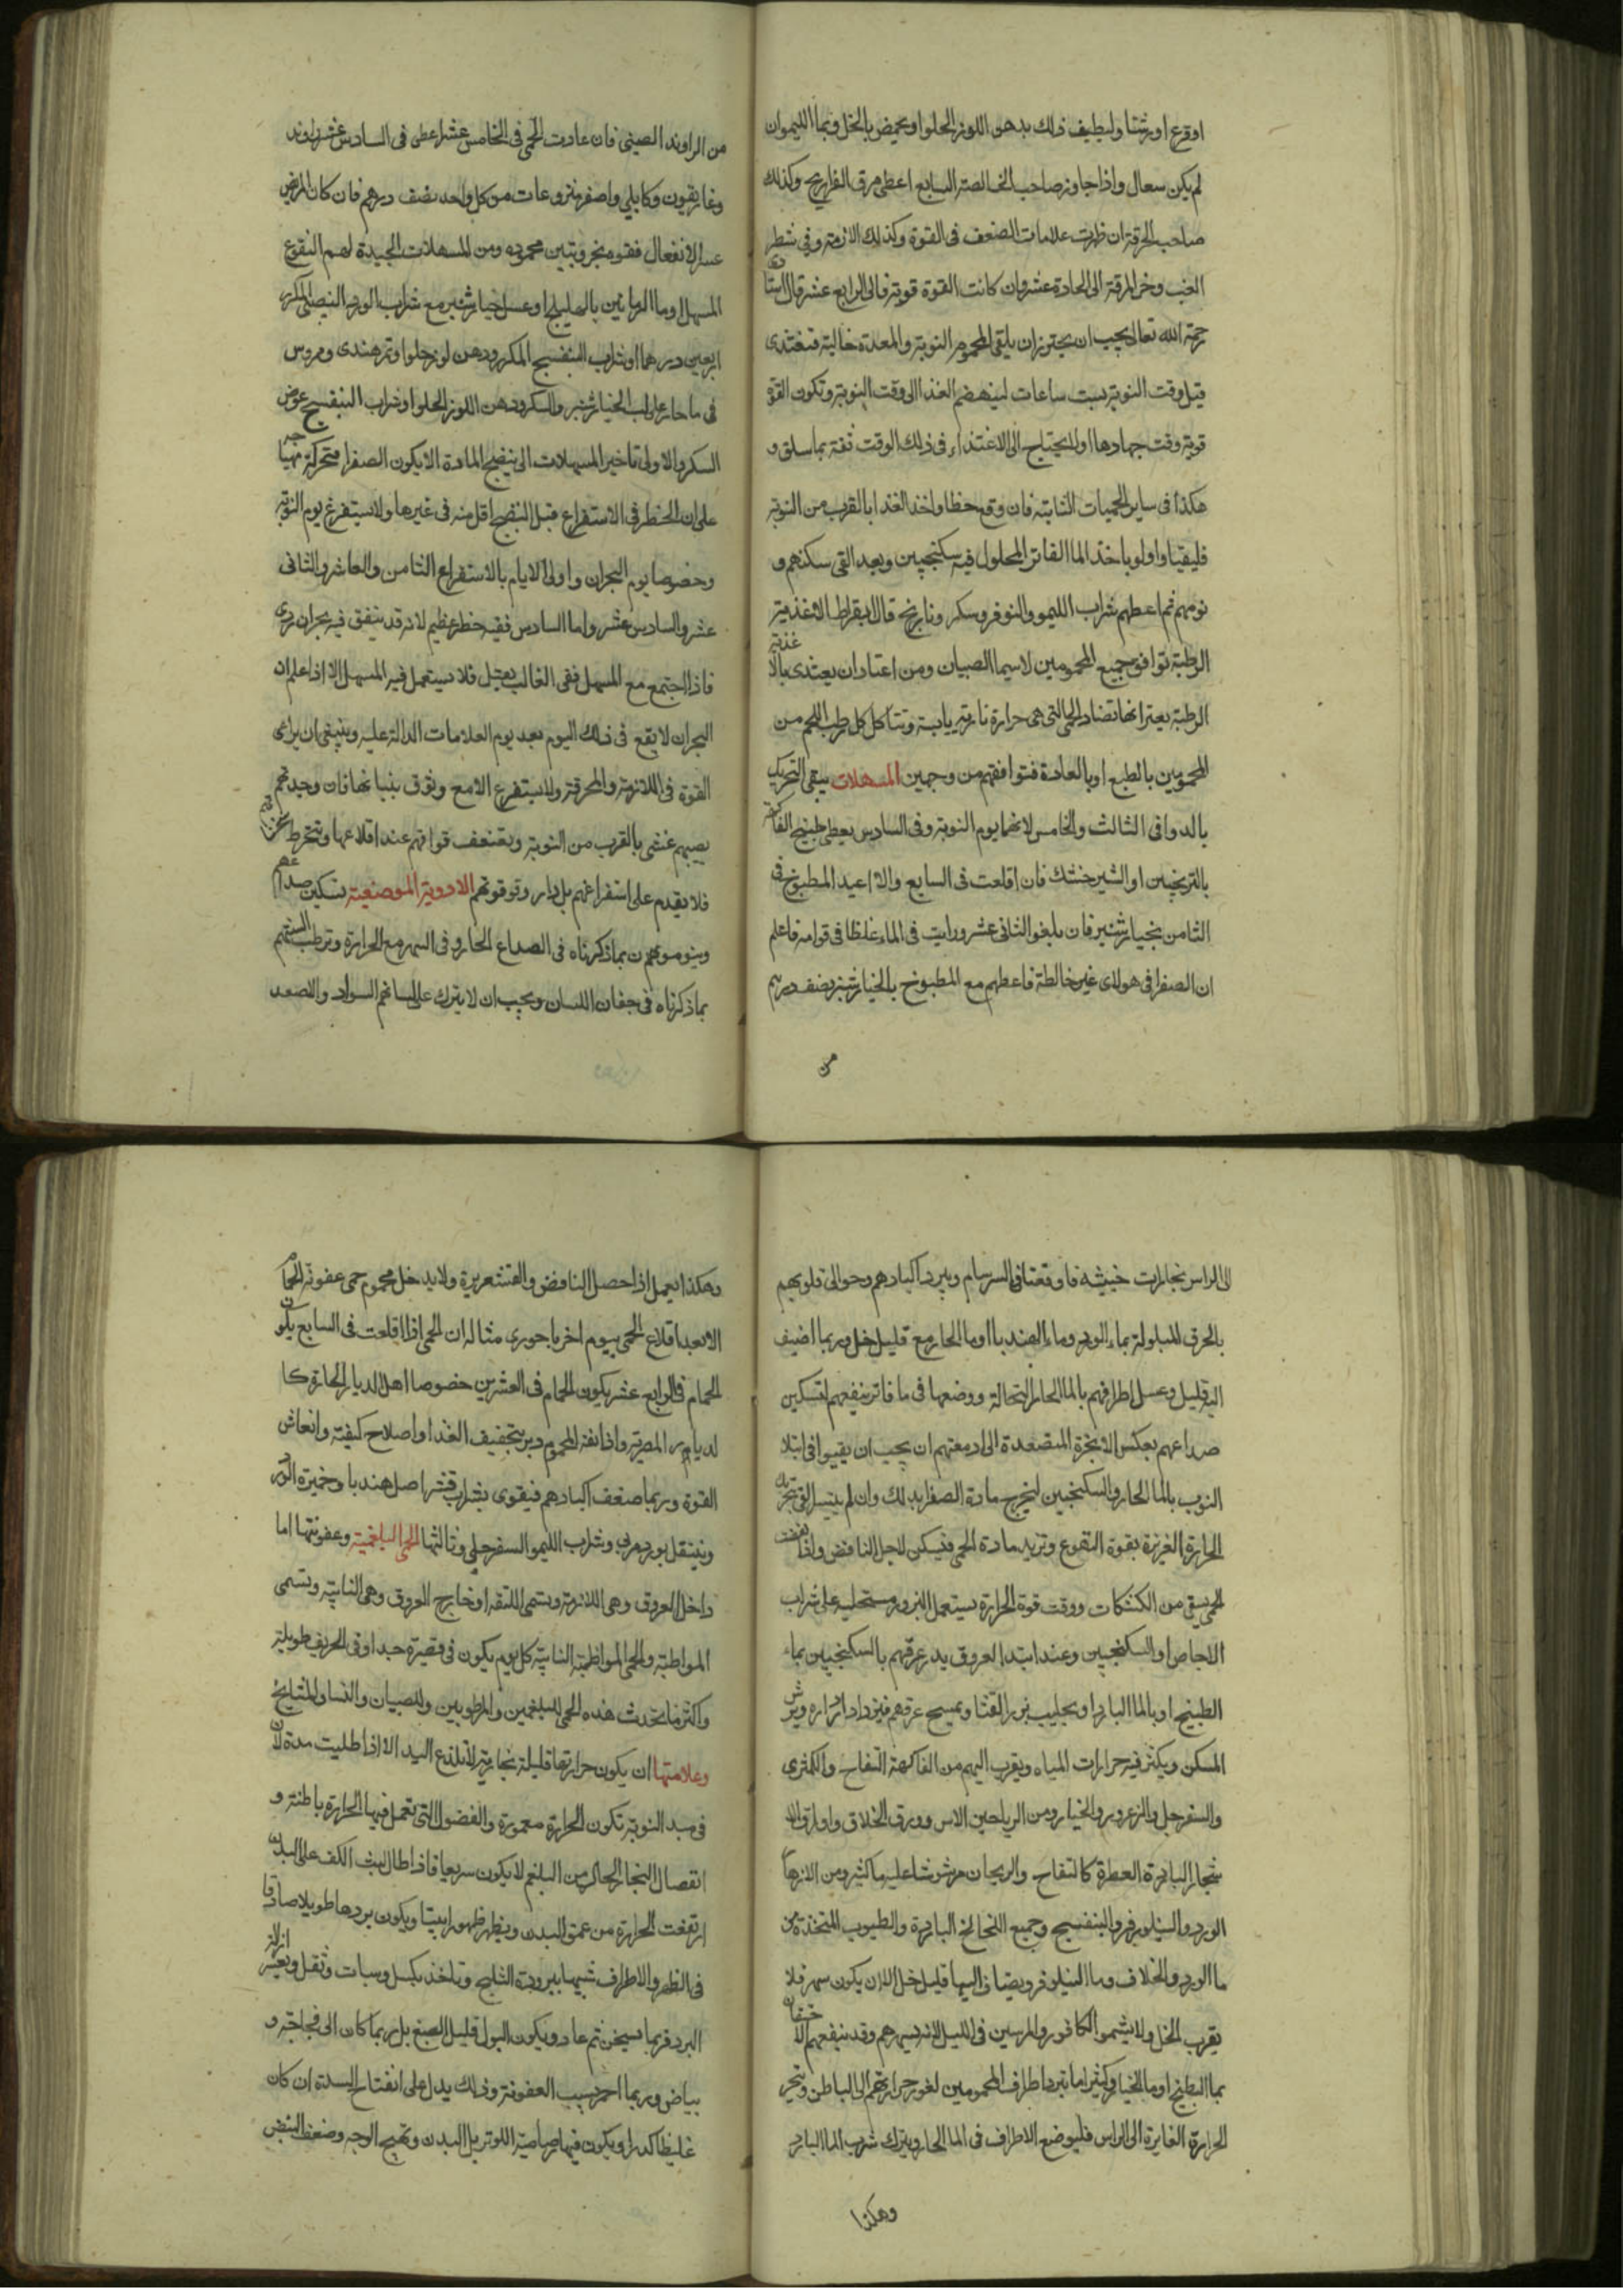 اوقرع اورشتا وليطيف ذلك بدهن اللوز الحلوا ويحمض بالخل وبما الليموان
لم يكن سعال واذا جاوز صاحب الخالصة السابع اعطى مرق الفراريج وكذلك
صاحب الحرقة ان ظهرت علامات الضعف فى القوة وكذلك الازمة وفي شطر
الغب وخر المرقة الى الحادة عشر وان كانت القوة قوية فالى الرابع عشر قال استا
رحمة الله تعالى يجب ان يجتوزان يلقى المحموم النوبة والمعدة خالية فتغتدى
قبل وقت النوبة بست ساعات لينهضم الغذا الى وقت النوبة وتكون القوة
قوية وقت جهادها اولا يحتاج الى الاغتذاء فى ذلك الوقت ثقة بما سلق و
هكذا فى ساير الحميات النايبة فان وقع حظا واخذ الغذا بالقرب من النوبة
فليقيا واولو باخذ الما الفاتر المحلول فيه سكنجبين وبعد القى سكنهم و
نومهم ثم اعطهم شراب الليمو والنوفر وسكر ونارنج قال ابقراط الاغذية
الرطبة توافق جميع المحمومين لاسيما الصبيان ومن اعتاد ان يعتدى بالاغذية
الرطبة يعتر انها تضاد الحمى التى هى حرارة نارية يابسة وتتاكل كل رطب اللحم من
المحمومين بالطبع او بالعادة فتوافقهم من وجهين المسهلات يبقى التحريك
بالدوا فى الثالث والخامس لانهما يوم النوبة وفى السادس يعطى طبيخ الفاكهة
بالترنجبين او الشير خشك فان اقلعت فى السابع والا اعيد المطبوخ فى
الثامن بخيار شنبر فان بلغوا الثانى عشر ورايت فى الماء غلظا فى قوامه فاعلم
ان الصفرا فى هولاى غير خالطة فاعطهم مع المطبوخ بالخيار شنبر نصف درهم
من
من الراوند الصينى فان عادت الحمى فى الخامس عشر اعطى فى السادس عشر راوند
وغاريقون وكابلى واصفر منزوعات من كل واحد نصف درهم فان كان المريض
عسر الانفعال فقوه بخروبتين محموده ومن المسهلات الجيدة لهم النقوع
المسهل او ما الرمانين بالهليلج او عسل خيار شنبر مع شراب الورد النصيبى المكرر
اربعين درهما او شراب البنفسج المكرر ودهن لوز حلوا وتمر هندى ومروس
فى ما حار على لب الخيار شنبر والسكر ودهن اللوز الحلوا وشراب البنفسج عوض
السكر والاولى تاخير المسهلات الى ينضج المادة الا يكون الصفرا متحركة مهياجه
على ان الخطر فى الاستفراع قبل النضج اقل منه فى غيرها ولا يستفرغ يوم النوبة
وخصوصا يوم البحران واولى الايام بالاستفراغ الثامن والعاشر والثانى
عشر والسادس عشر واما السادس ففيه خطر عظيم لانه قد يتفق فيه بحران ردى
فاذا اجتمع مع المسهل ففى الغالب يقتل فلا يستعمل فيه المسهل الا اذا علم ان
البحران لا يقع فى ذلك اليوم بعد يوم العلامات الدالة عليه وينبغى ان يراعى
القوة فى اللازمة والمحرقة ولا يستفرغ الا مع وثوق بثباتها فان وجدتهم
يصيبهم غشى بالقرب من النوبة وبقتضعف قواتهم عند اقلاعها وتنخرط
فلا تقدم على استفراغهم بل دار وتوقوتهم الادوية الموضعية تسكين صداعهم
وينوموهم ن بما ذكرناه فى الصداع الحار وفى السهر مع الحرارة وترطب السنتهم
بما ذكرناه فى جفان اللسان ويجب ان لا يترك على لسانهم السواد والاصعد
الى الراس بخارات خبيثة فاوقعتا فى السرسام ويبرد اكبادهم وحوالى قلوبهم
بالخرق المبلولة بماء الورد وماء الهندبا او ما الحار مع قليل خل وربما اضيف
اليه قليل وعسل اطرافهم بالما الحار النحالة ووضعها فى ما فاتر ينفعهم لتسكين
صداعهم بعكس الابخرة المتصعدة الى ادمغتهم ان يجب ان يقيوا فى ابتلا
النوب بالما الحار والسكنجبين ليخرج مادة الصفرا بذلك وان لم يتيسر القى تحرك
الحرارة الغريزة بقوة النقوع وتزيد مادة الحمى فتسكن لاجل النافض واذا
الحمى سقى من الكشكات ووقت قوة الحرارة يستعمل البزور مستحلبة على شراب
الاجاص او السكنجبين وعند ابتدا العروق يدر عرقهم بالسكنجبين بماء
الطبيخ او بالما البارد او بحليب بزر القثا ويمسح عرقهم فيزداد ادراره ويرش
المسكن ويكثر فيه حرارات المياه ويقرب اليهم من الفاكهة التفاح والكمثرى
والسفرجل والزعرور والخيار ومن الرياحين الاس وورق الخلاف واوراق الا
شجار الباردة العطرة كالتفاح والريحان مرشوشا عليها كثير ومن الازها
الورد والنيلوفر والبنفسج وجميع اللخالخ الباردة والطيوب المتخذة من
ما الورد والخلاف وما النيلوفر ويضاف اليها قليل خل الا ان يكون سهر فلا
يقرب الخل ولا يشموا الكافور والمرسين فى الليل لانه يسهرهم وقد ينفعهم الاختقان
بما البطيخ او ما الخيار وكثيرا ما تبرد اطراف المحمومين لغور حرارتهم الى الباطن ويتحر
الحرارة الغايرة الى الراس فليوضع الاطراف فى الما الحار ويترك شرب الما البارد
وهكذا
وهكذا يعمل اذا حصل النافض والقشعريرة ولا يدخل محموم حمى عفونة الحمام
الا بعد اقلاع الحمى بيوم اخر باجورى مثاله ان الحمى اذا اقلعت فى السابع يكون
الحمام فى الرابع عشر يكون الحمام فى العشرين خصوصا اهل الديار الحارة كا
لديار المصرية واذا نقه المحموم دبر بتجفيف الغذا واصلاح كيفيته وانعاش
القوة وربما ضعف اكبادهم فيقوى بشراب قشر اصل هندبا وخميرة الورد
ويتنقل بورد مربى وشراب الليمو السفرجلى وثالثها الحمى البلغمية وعفونتها اما
داخل العروق وهى اللازمة وتسمى اللثقه او خارج العروق وهى النايبة وتسمى
المواظبة والحمى المواظبة النايبة كل يوم يكون فى قصيرة جدا وفى الخريف طويلة
واكثر ما تحدث هذه الحمى للبلغمين والمرطوبين والصبيان والنسا والمشايخ
وعلامتها ان يكون حرارتها قليلة بخارية لا تلذع اليد الا اذا طليت مدة لان
فى مبدا النوبة تكون الحرارة مغمورة والفضول التى تعمل فيها الحرارة باطنة و
انفصال البخار الحار من البلغم لا يكون سريعا فاذا طال لبث الكف على البدن
ارتفعت الحرارة من عمق البدن ويظهر ظهورا بيتا ويكون بردها طويلا صادقا
فى الظهر والاطراف شبيها ببرودة الثلج وتاخذ بكسل وسبات وثقل ويعسر ازالة
البرد فربما تسخن ثم عاد ويكون البول قليل الصبغ بل ربما كان الى فجاجة و
بياض وربما احمر بسبب العفونة وذلك يدل على انفتاح السدة ان كان
غليظا كدرا ويكون فيها رصاصية اللون تربل البدن وتهيج الوجه وضعف النبض